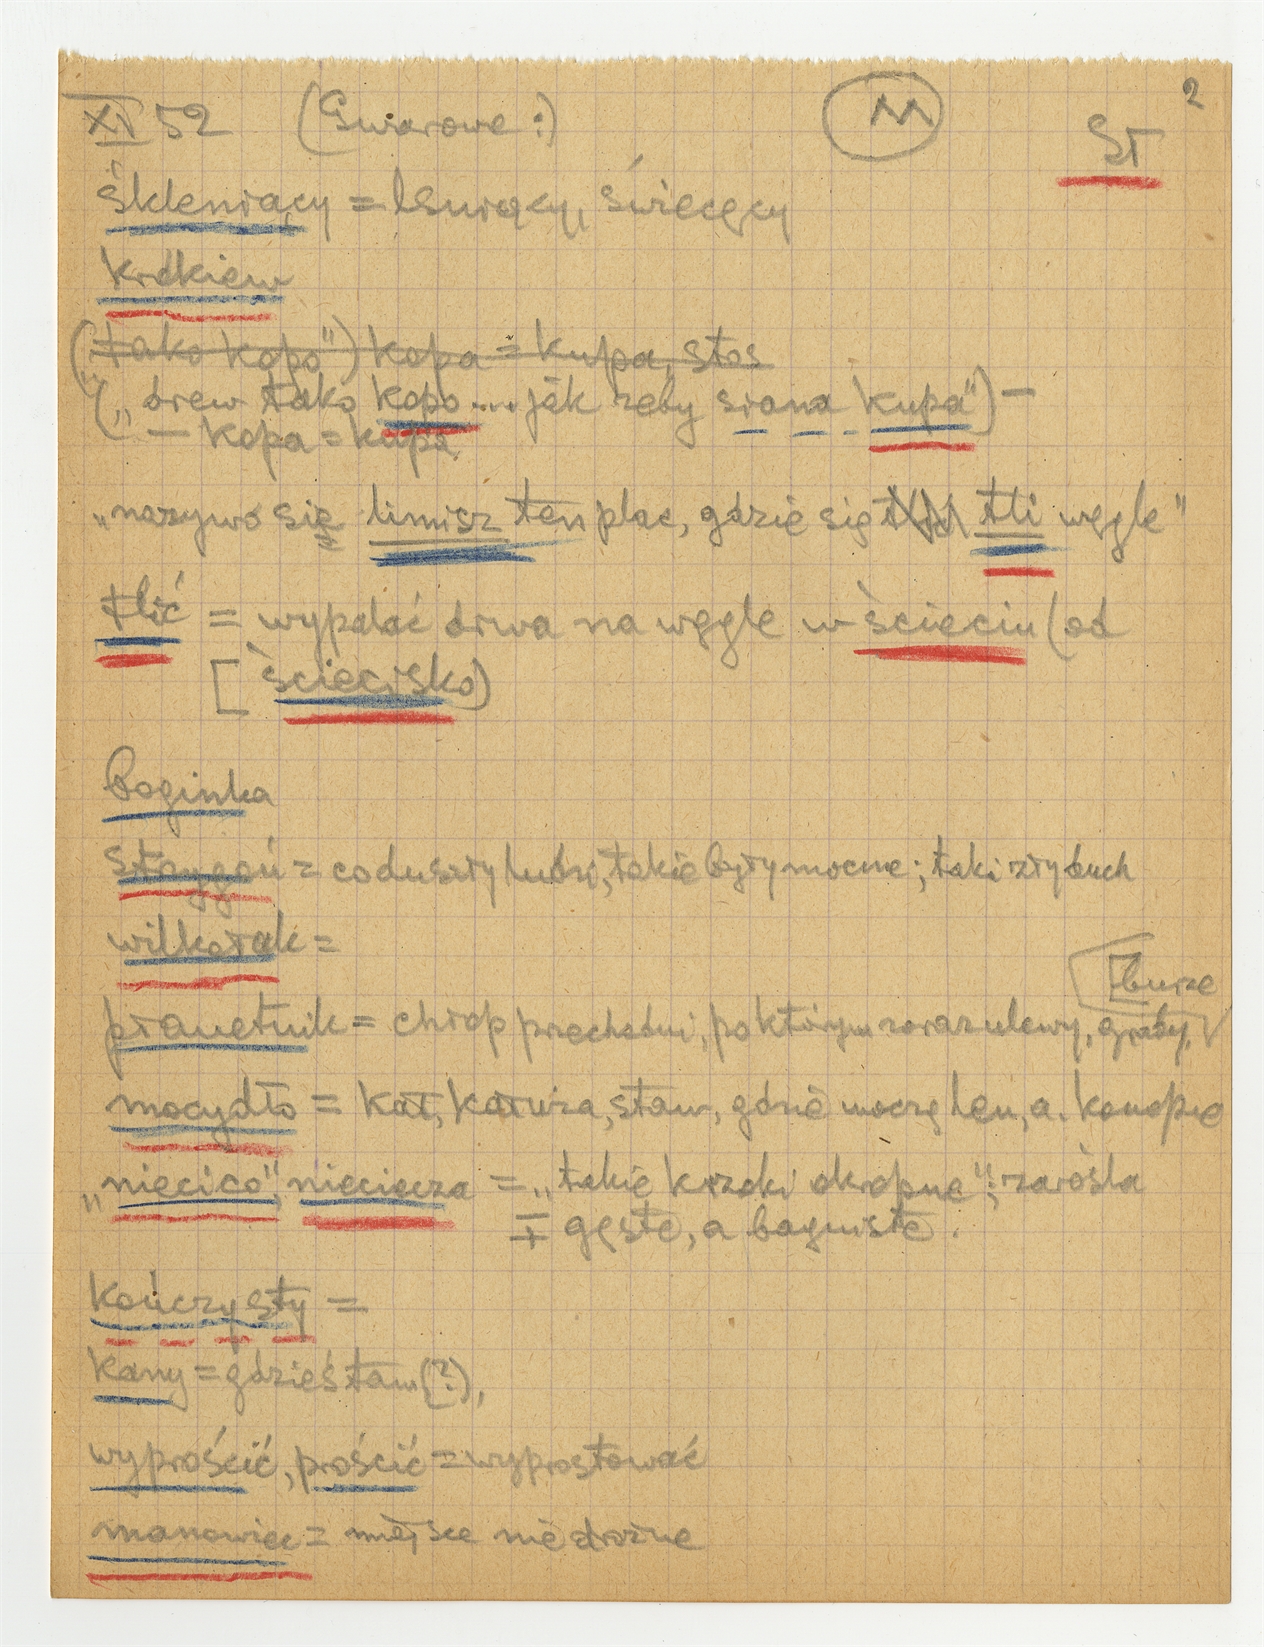 XI 52 (Gwarowe:) M 2
St
śkleniący = lśniący, świecący
krokiew
("tako kopo") kopa = kupa, stos
(„drew tako kopo... jak żeby siana kupa") —
— kopa = kupa
„nazywo się limisz ten plac, gdzie się tli węgle"
tlić = wypalać drwa na węgle w ścieciu (od
[ściecisko)
Boginka
strzygoń = co duszły ludzi, takie były mocne; taki zły duch
wilkołak =
[burze
płanetnik = chłop przechodni, po którym zaraz ulewy, grady,
mocydło = kał, kałuża, staw, gdzie moczę len, a. konopie
„niecico", nieciecza = „takie krzoki okropne"; zarośla
∓ gęste, a bagniste.
kończysty =
kany = gdzieś tam (?),
wyprościć, prościć = wyprostować
manowiec = miejsce niedrożne